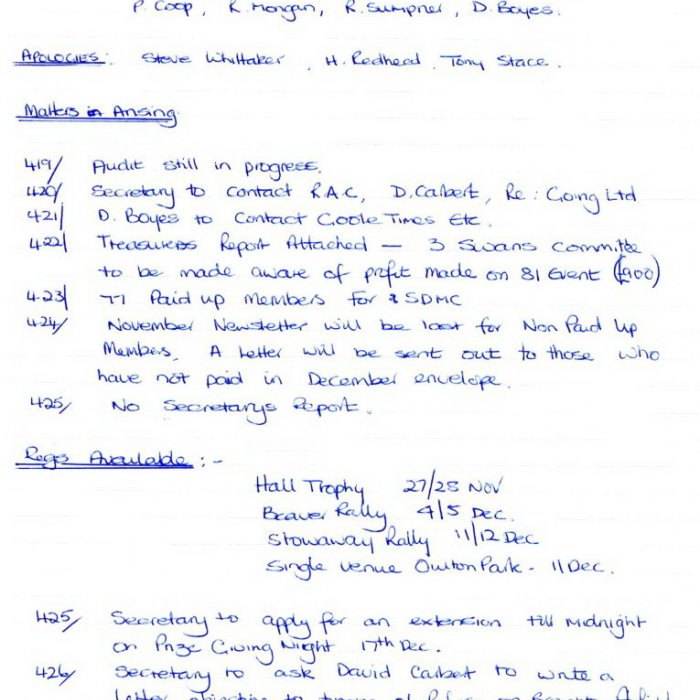 P. Coop, K. Morgan, R. Sumpner, D. Boyes.
APOLOGIES: Steve Whittaker, H. Redhead. Tony Stace.
Matters in Arising
419/ Audit still in progress.
420/ Secretary to contact R.A.C, D. Calbert, Re: Going Ltd
421/ D. Boyes to Contact Goole Times Etc.
422/ Treasurers Report Attached — 3 Swans Committe
to be made aware of profit made on 81 Event (£900)
423/ 77 Paid up Members for SDMC
424/ November Newsletter will be last for Non Paid Up
Members. A Letter will be sent out to those who
have not paid in December envelope.
425/ No Secretarys Report.
Regs Available :-
Hall Trophy 27/28 Nov
Beaver Rally 4/5 Dec.
Stowaway Rally 11/12 Dec
Single venue Oulton Park - 11 Dec.
425/ Secretary to apply for an extension till Midnight
on Prize Giving Night 17th Dec.
426/ Secretary to ask David Calbert to write a
Letter objecting to